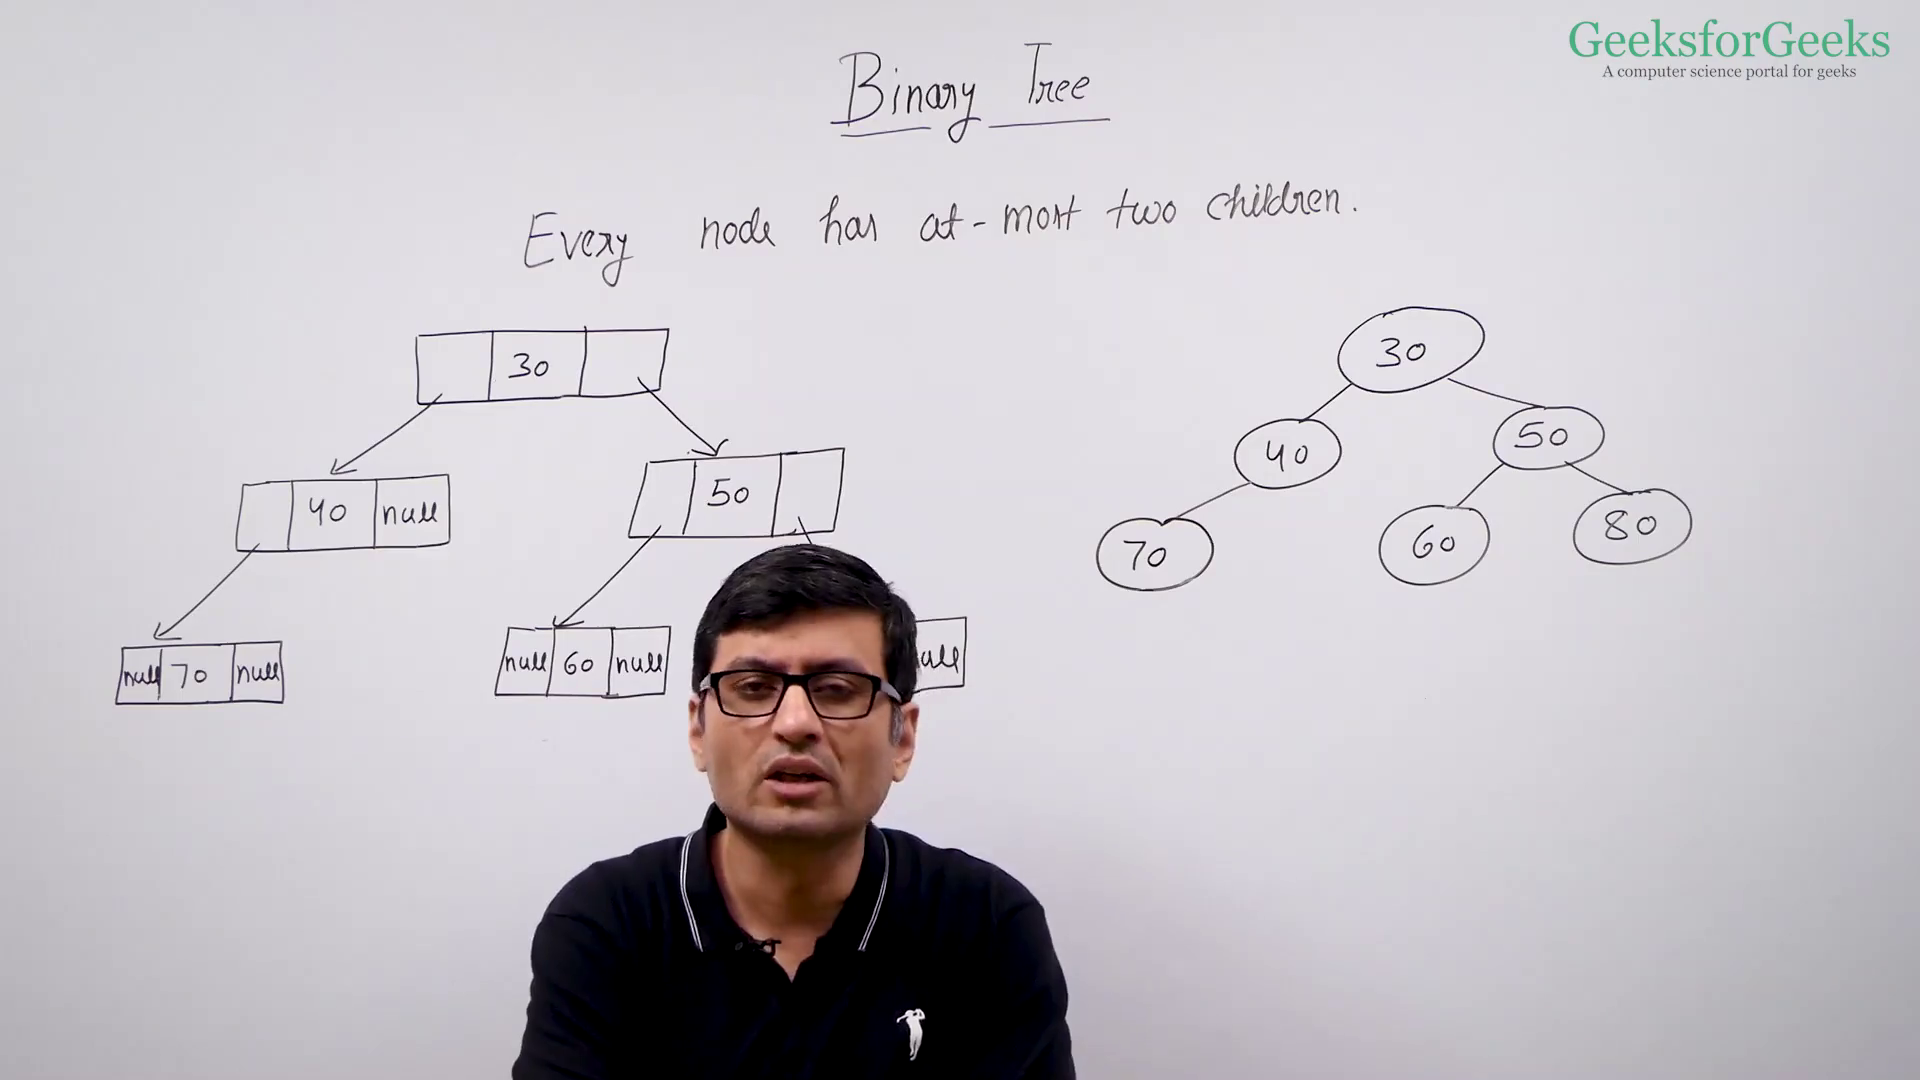 GeeksforGeeks
A computer science portal for geeks
Binary Tree
Every node has at-most two children.
30
40 null
50
null 70 null
null 60 null
30
40
50
70
60
80